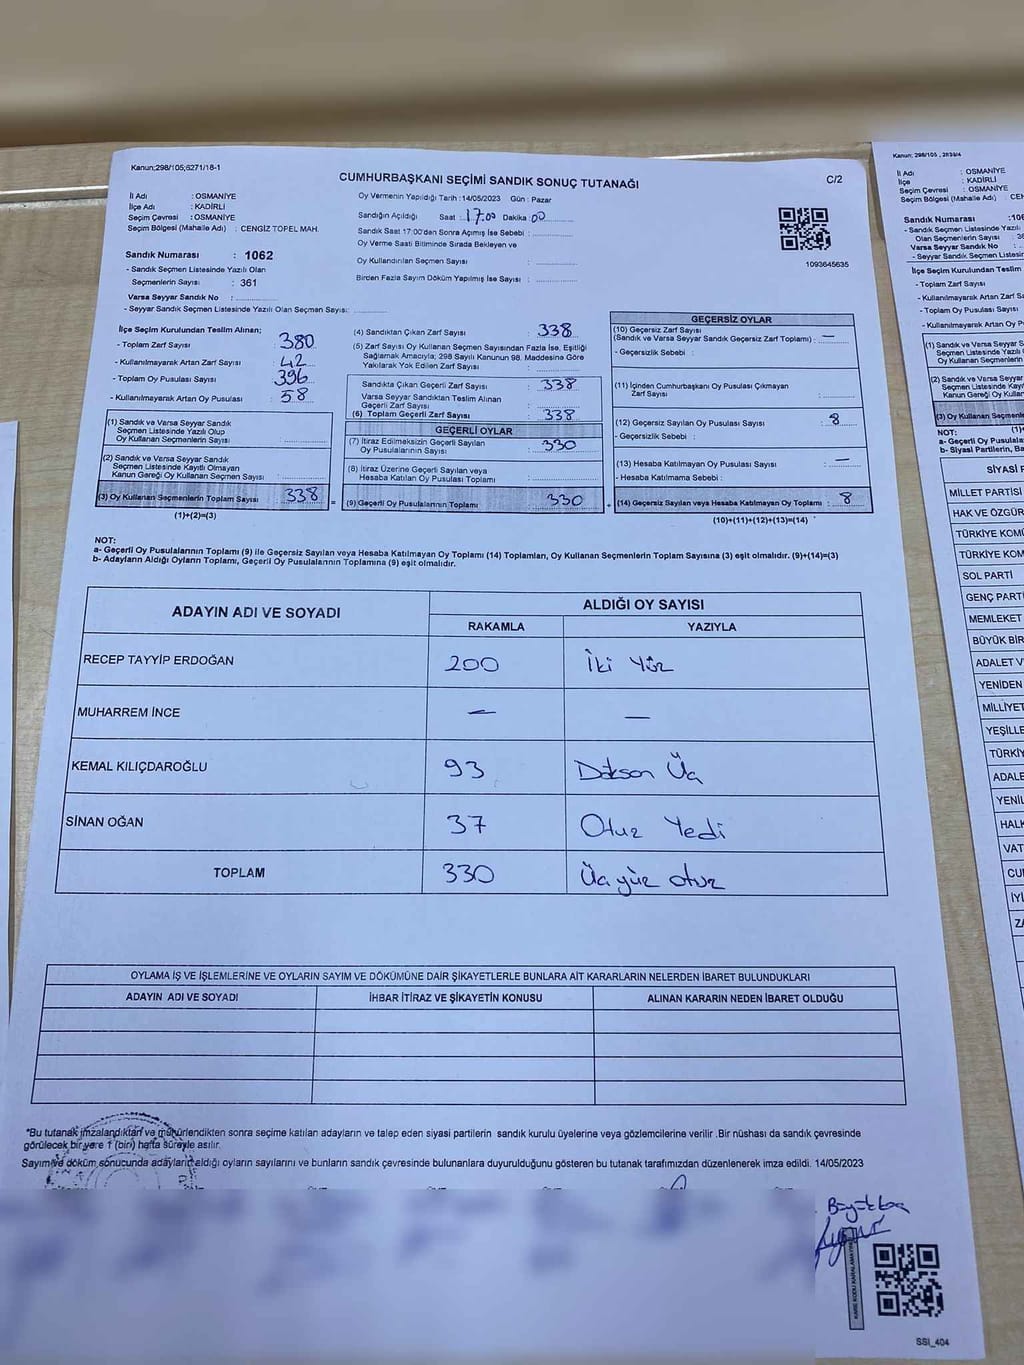 Kanun;298/105;6271/18-1
CUMHURBAŞKANI SEÇİMİ SANDIK SONUÇ TUTANAĞI
C/2
İl Adı : OSMANİYE
İlçe Adı : KADİRLİ
Seçim Çevresi : OSMANİYE
Seçim Bölgesi (Mahalle Adı) : CENGİZ TOPEL MAH.
Sandık Numarası : 1062
- Sandık Seçmen Listesinde Yazılı Olan
Seçmenlerin Sayısı : 361
Varsa Seyyar Sandık No :
- Seyyar Sandık Seçmen Listesinde Yazılı Olan Seçmen Sayısı:
Oy Vermenin Yapıldığı Tarih : 14/05/2023 Gün : Pazar
Sandığın Açıldığı Saat : 17.00 Dakika : 00
Sandık Saat 17:00'den Sonra Açımış İse Sebebi :
Oy Verme Saati Bitiminde Sırada Bekleyen ve
Oy Kullandırılan Seçmen Sayısı :
Birden Fazla Sayım Döküm Yapılmış İse Sayısı :
1093645635
İlçe Seçim Kurulundan Teslim Alınan;
- Toplam Zarf Sayısı : 380
- Kullanılmayarak Artan Zarf Sayısı : 42
- Toplam Oy Pusulası Sayısı : 396
- Kullanılmayarak Artan Oy Pusulası : 58
(1) Sandık ve Varsa Seyyar Sandık
Seçmen Listesinde Yazılı Olup
Oy Kullanan Seçmenlerin Sayısı :
(2) Sandık ve Varsa Seyyar Sandık
Seçmen Listesinde Kayıtlı Olmayan
Kanun Gereği Oy Kullanan Seçmen Sayısı :
(3) Oy Kullanan Seçmenlerin Toplam Sayısı : 338
(1)+(2)=(3)
(4) Sandıktan Çıkan Zarf Sayısı : 338
(5) Zarf Sayısı Oy Kullanan Seçmen Sayısından Fazla İse, Eşitliği
Sağlamak Amacıyla; 298 Sayılı Kanunun 98. Maddesine Göre
Yakılarak Yok Edilen Zarf Sayısı :
Sandıkta Çıkan Geçerli Zarf Sayısı : 338
Varsa Seyyar Sandıktan Teslim Alınan
Geçerli Zarf Sayısı :
(6) Toplam Geçerli Zarf Sayısı : 338
GEÇERLİ OYLAR
(7) İtiraz Edilmeksizin Geçerli Sayılan
Oy Pusulalarının Sayısı : 330
(8) İtiraz Üzerine Geçerli Sayılan veya
Hesaba Katılan Oy Pusulası Toplamı :
= (9) Geçerli Oy Pusulalarının Toplamı : 330
GEÇERSİZ OYLAR
(10) Geçersiz Zarf Sayısı
(Sandık ve Varsa Seyyar Sandık Geçersiz Zarf Toplamı) : —
- Geçersizlik Sebebi :
(11) İçinden Cumhurbaşkanı Oy Pusulası Çıkmayan
Zarf Sayısı :
(12) Geçersiz Sayılan Oy Pusulası Sayısı : 8
- Geçersizlik Sebebi :
(13) Hesaba Katılmayan Oy Pusulası Sayısı : —
- Hesaba Katılmama Sebebi :
+ (14) Geçersiz Sayılan veya Hesaba Katılmayan Oy Toplamı : 8
(10)+(11)+(12)+(13)=(14)
NOT:
a- Geçerli Oy Pusulalarının Toplamı (9) ile Geçersiz Sayılan veya Hesaba Katılmayan Oy Toplamı (14) Toplamları, Oy Kullanan Seçmenlerin Toplam Sayısına (3) eşit olmalıdır. (9)+(14)=(3)
b- Adayların Aldığı Oyların Toplamı, Geçerli Oy Pusulalarının Toplamına (9) eşit olmalıdır.
ADAYIN ADI VE SOYADI
ALDIĞI OY SAYISI
RAKAMLA YAZIYLA
RECEP TAYYİP ERDOĞAN 200 İki Yüz
MUHARREM İNCE — —
KEMAL KILIÇDAROĞLU 93 Doksan Üç
SİNAN OĞAN 37 Otuz Yedi
TOPLAM 330 Üçyüz otuz
OYLAMA İŞ VE İŞLEMLERİNE VE OYLARIN SAYIM VE DÖKÜMÜNE DAİR ŞİKAYETLERLE BUNLARA AİT KARARLARIN NELERDEN İBARET BULUNDUKLARI
ADAYIN ADI VE SOYADI İHBAR İTİRAZ VE ŞİKAYETİN KONUSU ALINAN KARARIN NEDEN İBARET OLDUĞU
*Bu tutanak imzalandıktan ve mühürlendikten sonra seçime katılan adayların ve talep eden siyasi partilerin sandık kurulu üyelerine veya gözlemcilerine verilir .Bir nüshası da sandık çevresinde
görülecek bir yere 1 (biri) hafta süreyle asılır.
Sayım ve döküm sonucunda adayların aldığı oyların sayılarını ve bunların sandık çevresinde bulunanlara duyurulduğunu gösteren bu tutanak tarafımızdan düzenlenerek imza edildi. 14/05/2023
SSI_404
Kanun: 298/105 , 2839/4
İl Adı : OSMANİYE
İlçe : KADİRLİ
Seçim Çevresi : OSMANİYE
Seçim Bölgesi (Mahalle Adı) :
Sandık Numarası
- Sandık Seçmen Listesinde Yazılı
Olan Seçmenlerin Sayısı
Varsa Seyyar Sandık No
İlçe Seçim Kurulundan Teslim
- Toplam Zarf Sayısı
- Kullanılmayarak Artan Zarf
- Toplam Oy Pusulası Sayısı
- Kullanılmayarak Artan Oy
(1) Sandık ve Varsa Seyyar
Seçmen Listesinde
Oy Kullanan Seçmenlerin
(2) Sandık ve Varsa
Seçmen Listesinde
Kanun Gereği Oy
(3) Oy Kullanan
NOT:
a- Geçerli Oy
b- Siyasi Partilerin,
SİYASİ
MİLLET PARTİSİ
HAK VE ÖZGÜR
TÜRKİYE
TÜRKİYE
SOL PARTİ
GENÇ
MEMLEKET
BÜYÜK
ADALET
YENİDEN
TÜRKİY